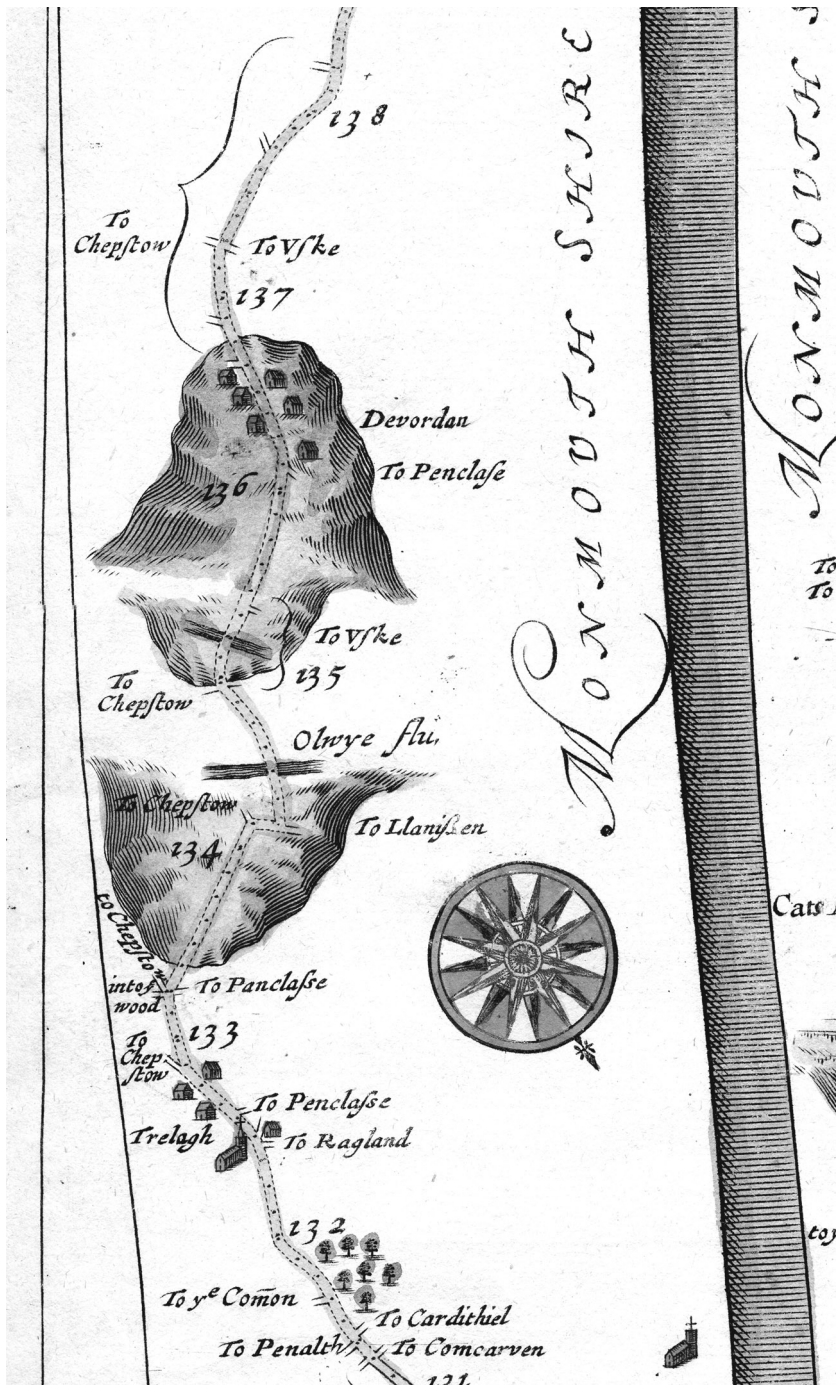 138
To
Chepſtow
To Vſke
137
Devordan
To Penclaſe
136
To Vſke
135
To
Chepſtow
Olwye flu.
To Chepſtow
To Llaniſſen
134
to Chepſtow
into y
wood
To Panclaſse
133
To
Chep
ſtow
To Penclaſse
Trelagh
To Ragland
132
To yᵉ Com̄on
To Cardithiel
To Penalth
To Comcarven
131
MONMOVTH SHIRE
MONMOVTH S
To
To
Cats
toy